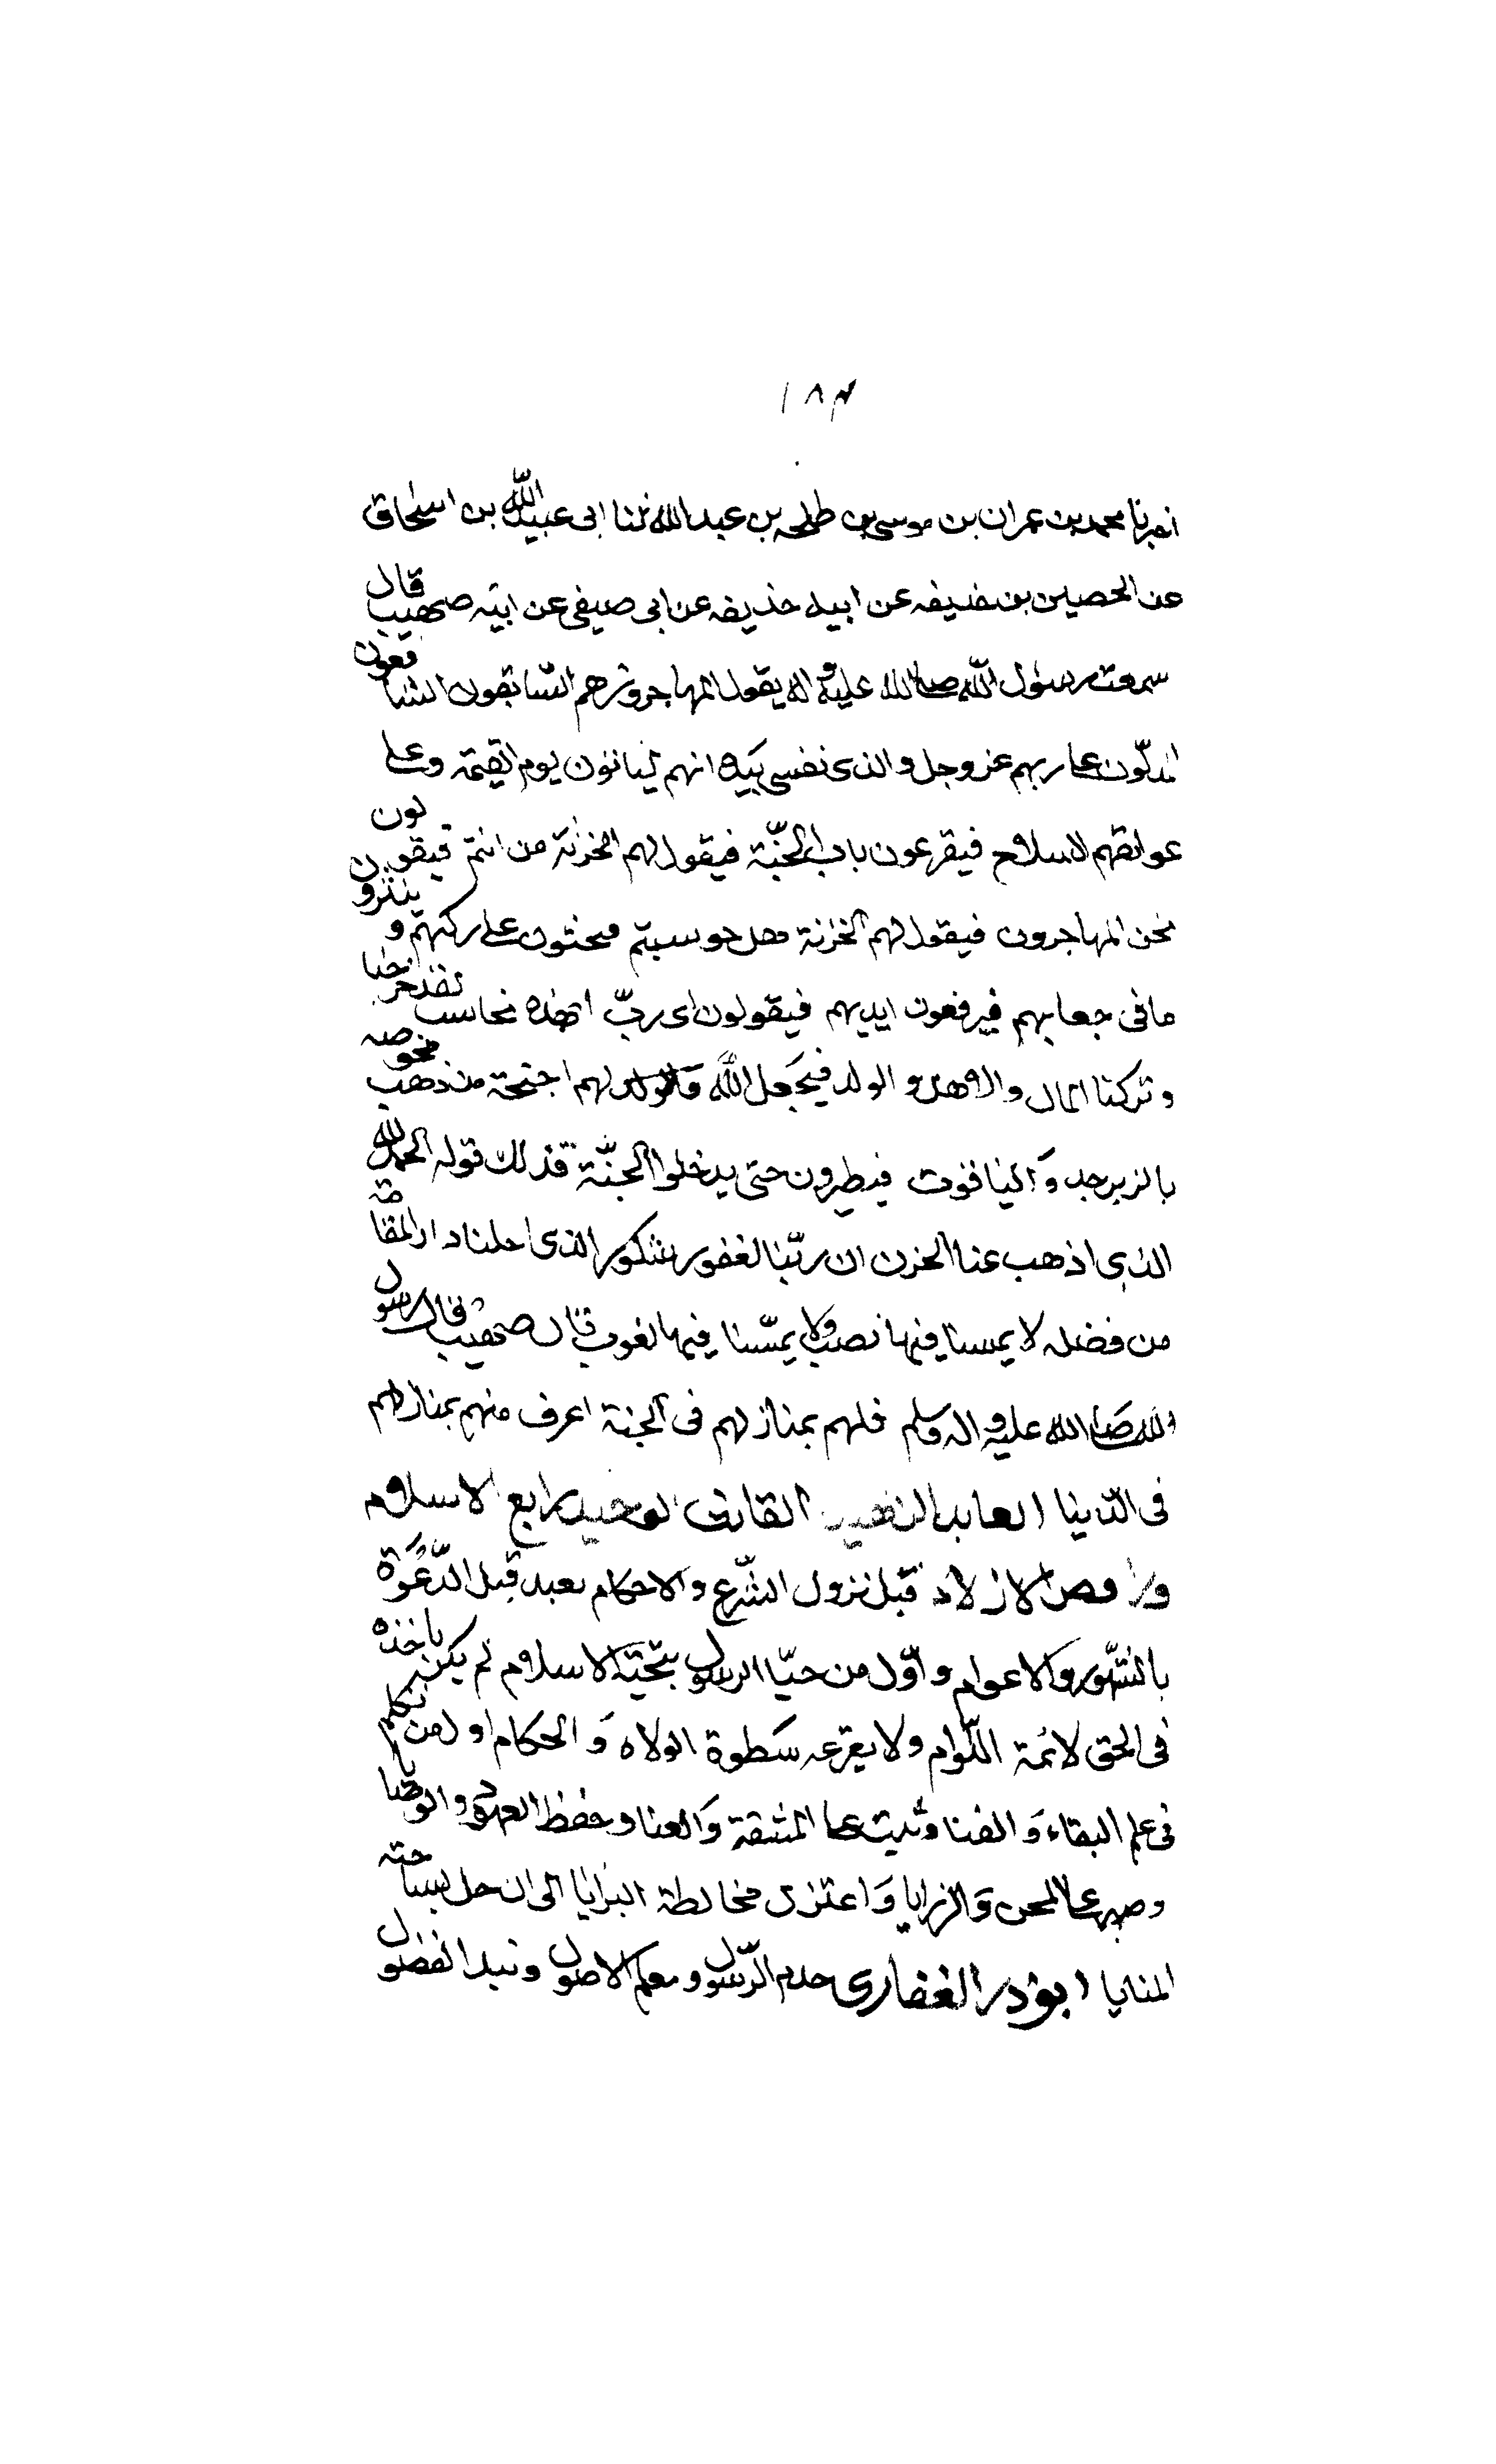 ١٨٤
اخبرنا محمد بن عمران بن موسى بن طلحه بن عبد الله ثنا ابى عبيد الله بن اسحاق
عن الحصين بن حذيفه عن ابيه حذيفه عن ابى صيفى عن ابيه صهيب قال
سمعت رسول الله صلى الله عليه واله يقول المهاجرون هم السّابقون الشافعون
المدلّون على ربهم عز وجل والذى نفسى بيَده انهم ليأتون يوم القيمة وعلى
عواتقهم السلاح فيقرعون باب الجنّة فيقول لهم الخزنة من انتم فيقولون
نحن المهاجرون فيقول لهم الخزنة هل حوسبتم فيجثون على ركبهم و ينثرون
ما فى جعابهم فيرفعون ايديهم فيقولون اى ربّ ابهذه نحاسب لقد خرجنا
و تركنا المال والاهل و الولد فيَجعل الله لهم اجنحة من ذهب مخوصه
بالزبرجد وَ الياقوت فيطيرون حتى يدخلوا الجنّة فذلك قوله الحمد لله
الذى اذهب عنا الحزن ان ربّنا لغفور شكور الذى احلنا دار المقامة
من فضله لا يمسنا فيها نصب ولا يمسّنا فيها لغوب قال صهيب قال رسول
الله صَلى الله عليه واله وسلم فلهم بمنازلهم فى الجنة اعرف منهم بمنازلهم
فى الدّنيا العابد الزهيد القانت الوحيد رابع الاسلام
ورافض الازلام قبل نزول الشّرع والاحكام تعبد قبل الدّعوَة
بالشّهور والاعوام و اوّل من حيّا الرسول بتحيّة الاسلام لم يكن ياخذه
فى الحق لائمة اللّوام ولا يفزعه سَطوة الولاه وَ الحكام اول من تكلم
فى علم البقاء وَ الفنا وثبت على المشقة وَ العنا وحفظ العهود والوصايا
وصبر على المحن وَ الرزايا وَ اعتزل مخالطة البرايا الى ان حل بساحته
المنايا ابوذر الغفارى خدم الرّسول و تعلم الاصول ونبذ الفضول